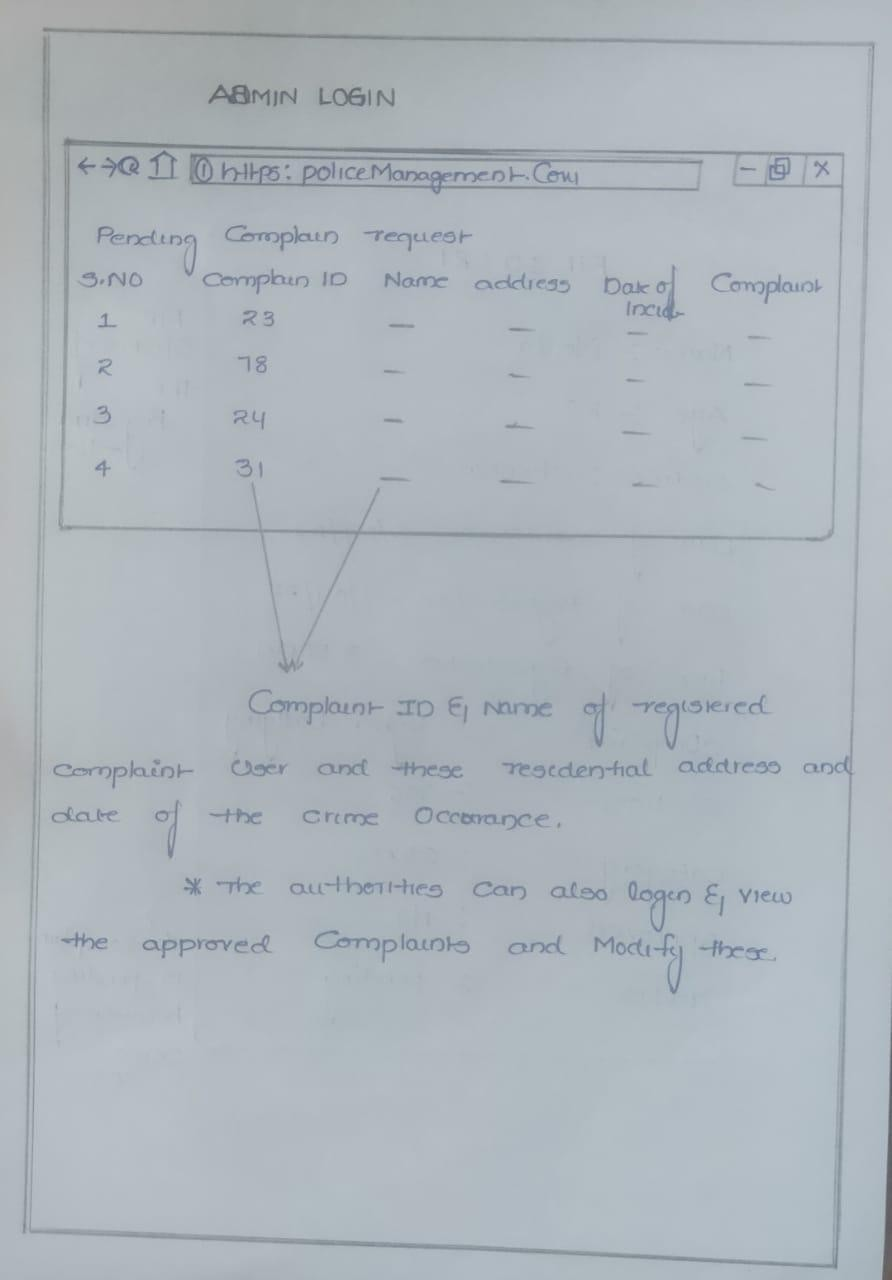 ADMIN LOGIN
← → ⟳ ⌂ ① https: policeManagement.Com – x
Pending Complain request
S.NO Complain ID Name address Date of Complaint
Incid
1 23 — — — —
2 78 — — — —
3 24 — — — —
4 31 — — — —
Complaint ID & Name of registered
complaint User and these residential address and
date of the crime Occurance.
* The authorities can also login & view
the approved Complaints and Modify these.